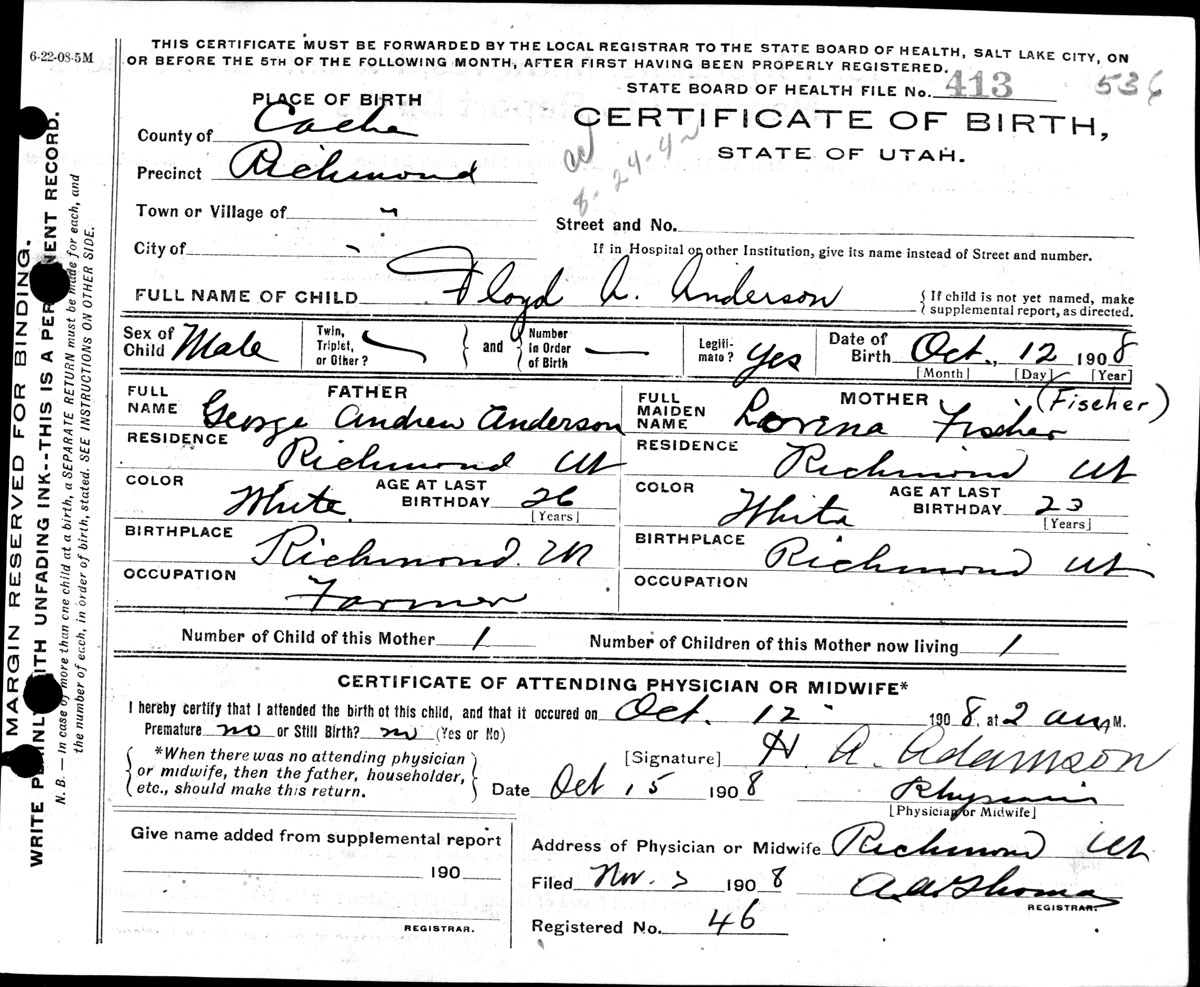 6-22-08-5M
THIS CERTIFICATE MUST BE FORWARDED BY THE LOCAL REGISTRAR TO THE STATE BOARD OF HEALTH, SALT LAKE CITY, ON
OR BEFORE THE 5TH OF THE FOLLOWING MONTH, AFTER FIRST HAVING BEEN PROPERLY REGISTERED.
STATE BOARD OF HEALTH FILE No. 413 536
PLACE OF BIRTH
CERTIFICATE OF BIRTH,
STATE OF UTAH.
8-24-42
County of Cache
Precinct Richmond
Town or Village of
Street and No.
City of
If in Hospital or other Institution, give its name instead of Street and number.
FULL NAME OF CHILD Floyd A. Anderson
{ If child is not yet named, make
supplemental report, as directed.
Sex of Child Male
Twin, Triplet, or Other?
and
Number In Order of Birth
Legiti- mate? Yes
Date of Birth Oct., 12 1908
[Month] [Day] [Year]
FATHER
FULL NAME George Andrew Anderson
RESIDENCE Richmond Ut
COLOR White
AGE AT LAST BIRTHDAY 26
[Years]
BIRTHPLACE Richmond. Ut
OCCUPATION Farmer
MOTHER (Fischer)
FULL MAIDEN NAME Lorena Fischer
RESIDENCE Richmond Ut
COLOR White
AGE AT LAST BIRTHDAY 23
[Years]
BIRTHPLACE Richmond Ut
OCCUPATION
Number of Child of this Mother 1
Number of Children of this Mother now living 1
CERTIFICATE OF ATTENDING PHYSICIAN OR MIDWIFE*
I hereby certify that I attended the birth of this child, and that it occured on Oct. 12 1908, at 2 am M.
Premature no or Still Birth? no (Yes or No)
*When there was no attending physician
or midwife, then the father, householder,
etc., should make this return.
[Signature] H. A. Adamson
Date Oct 15 1908
[Physician or Midwife]
Give name added from supplemental report
190
REGISTRAR.
Address of Physician or Midwife Richmond Ut
Filed Nov. 1908
REGISTRAR.
Registered No. 46
MARGIN RESERVED FOR BINDING.
WRITE PLAINLY WITH UNFADING INK--THIS IS A PERMANENT RECORD.
N. B. — In case of more than one child at a birth, a SEPARATE RETURN must be made for each, and
the number of each, in order of birth, stated. SEE INSTRUCTIONS ON OTHER SIDE.